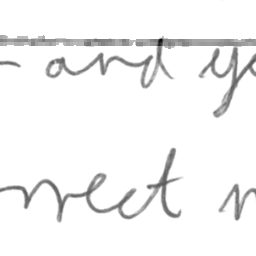 - and yo
rrect n